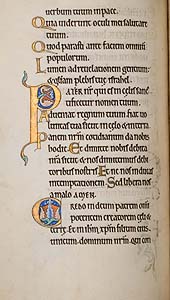 uerbum tuum in pace.
Quia uiderunt oculi mei salutare
tuum.
Quod parasti ante faciem omnium
populorum.
Lumen ad reuelationem gentium:
& gloriam plebis tue israhel.
PATER nr qui es in celis: sanc
tificetur nomen tuum.
Adueniat regnum tuum. fiat uo
luntas tua sicut in celo & in terra.
Panem nrm cotidianum da nobis
hodie. Et dimitte nobis debita
nra sicut & nos dimittimus debi
toribus nostris. Et ne nos inducas
in temptationem. Sed libera nos
a malo. AMEN.
CREDO in deum patrem omni
potentem creatorem celi &
terre. Et in ihm xpm filium eius
unicum dominum nrm. qui con